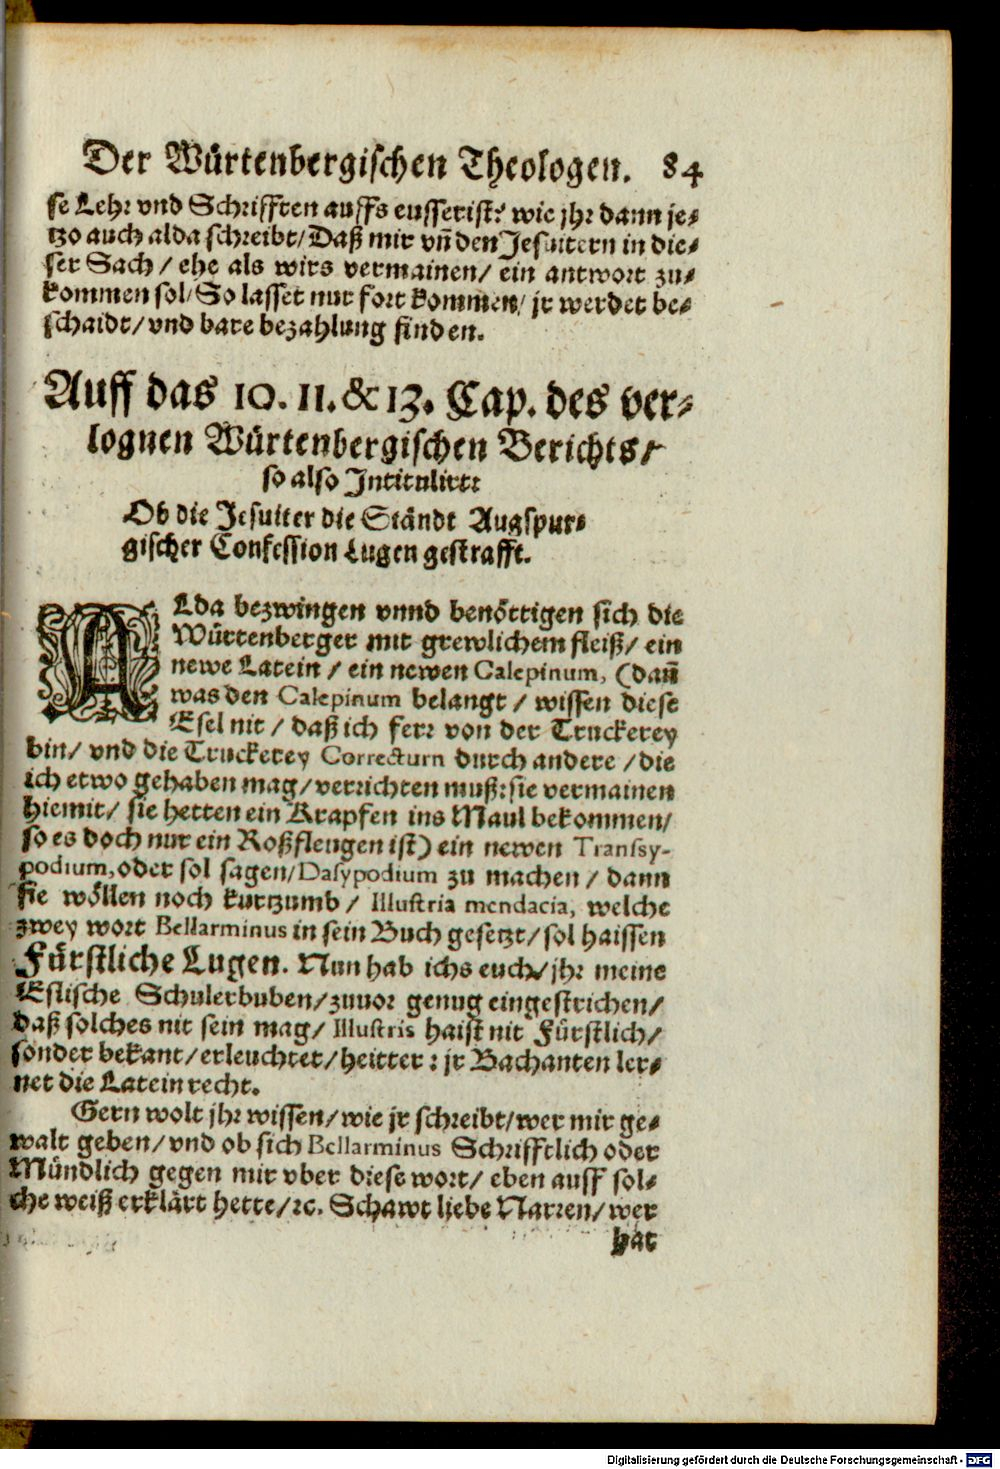 Der Würtenbergischen Theologen. 84
se Lehr vnd Schrifften auffs eusserist? wie jhr dann je-
tzo auch alda schreibt/ Daß mir vñ den Jesuitern in die-
ser Sach / ehe als wirs vermainen/ ein antwort zu-
kommen sol/ So lasset nur fort kommen/ jr werdet be-
schaidt/ vnd bare bezahlung finden.
Auff das 10. 11. & 13. Cap. des ver-
lognen Würtenbergischen Berichts/
so also Intitulirt:
Ob die Jesuiter die Ständt Augspur-
gischer Confession Lugen gestrafft.
ALda bezwingen vnnd benöttigen sich die
Würtenberger mit grewlichem fleiß/ ein
newe Latein / ein newen Calepinum, (dañ
was den Calepinum belangt / wissen diese
Esel nit / daß ich ferr von der Truckerey
bin/ vnd die Truckerey Correcturn durch andere / die
ich etwo gehaben mag/ verrichten muß: sie vermainen
hiemit/ sie hetten ein Krapfen ins Maul bekommen/
so es doch nur ein Roßflengen ist) ein newen Transsy-
podium, oder sol sagen/ Dasypodium zu machen / dann
sie wöllen noch kurtzumb / Illustria mendacia, welche
zwey wort Bellarminus in sein Buch gesetzt/ sol haissen
Fürstliche Lugen. Nun hab ichs euch/ jhr meine
Eslische Schulerbuben/ zuuor genug eingestrichen/
daß solches nit sein mag/ Illustris haist nit Fürstlich/
sonder bekant/ erleuchtet/ heitter: jr Bachanten ler-
net die Latein recht.
Gern wolt jhr wissen/ wie jr schreibt/ wer mir ge-
walt geben/ vnd ob sich Bellarminus Schrifftlich oder
Mündlich gegen mir vber diese wort/ eben auff sol-
che weiß erklärt hette/ ꝛc. Schawt liebe Narren/ wer
hat
Digitalisierung gefördert durch die Deutsche Forschungsgemeinschaft - DFG